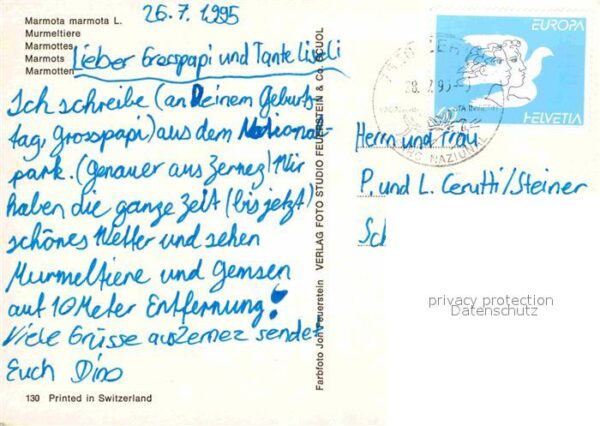 Marmota marmota L.
Murmeltiere
Marmottes
Marmots
Marmotten
26.7.1995
Lieber Grosspapi und Tante Liseli
Ich schreibe (an Deinem Geburts-
tag, grosspapi) aus dem National-
park. (Genauer aus Zernez) Wir
haben die ganze Zeit (bis jetzt)
schönes Wetter und sehen
Murmeltiere und Gemsen
auf 10 Meter Entfernung!
Viele Grüsse aus Zernez sendet
Euch Dino
130 Printed in Switzerland
Farbfoto Jon Feuerstein VERLAG FOTO STUDIO FEUERSTEIN & CO. SCUOL
EUROPA
HELVETIA
NAZIUNAL
Herrn und Frau
P. und L. Cerutti/Steiner
Sch
privacy protection
Datenschutz